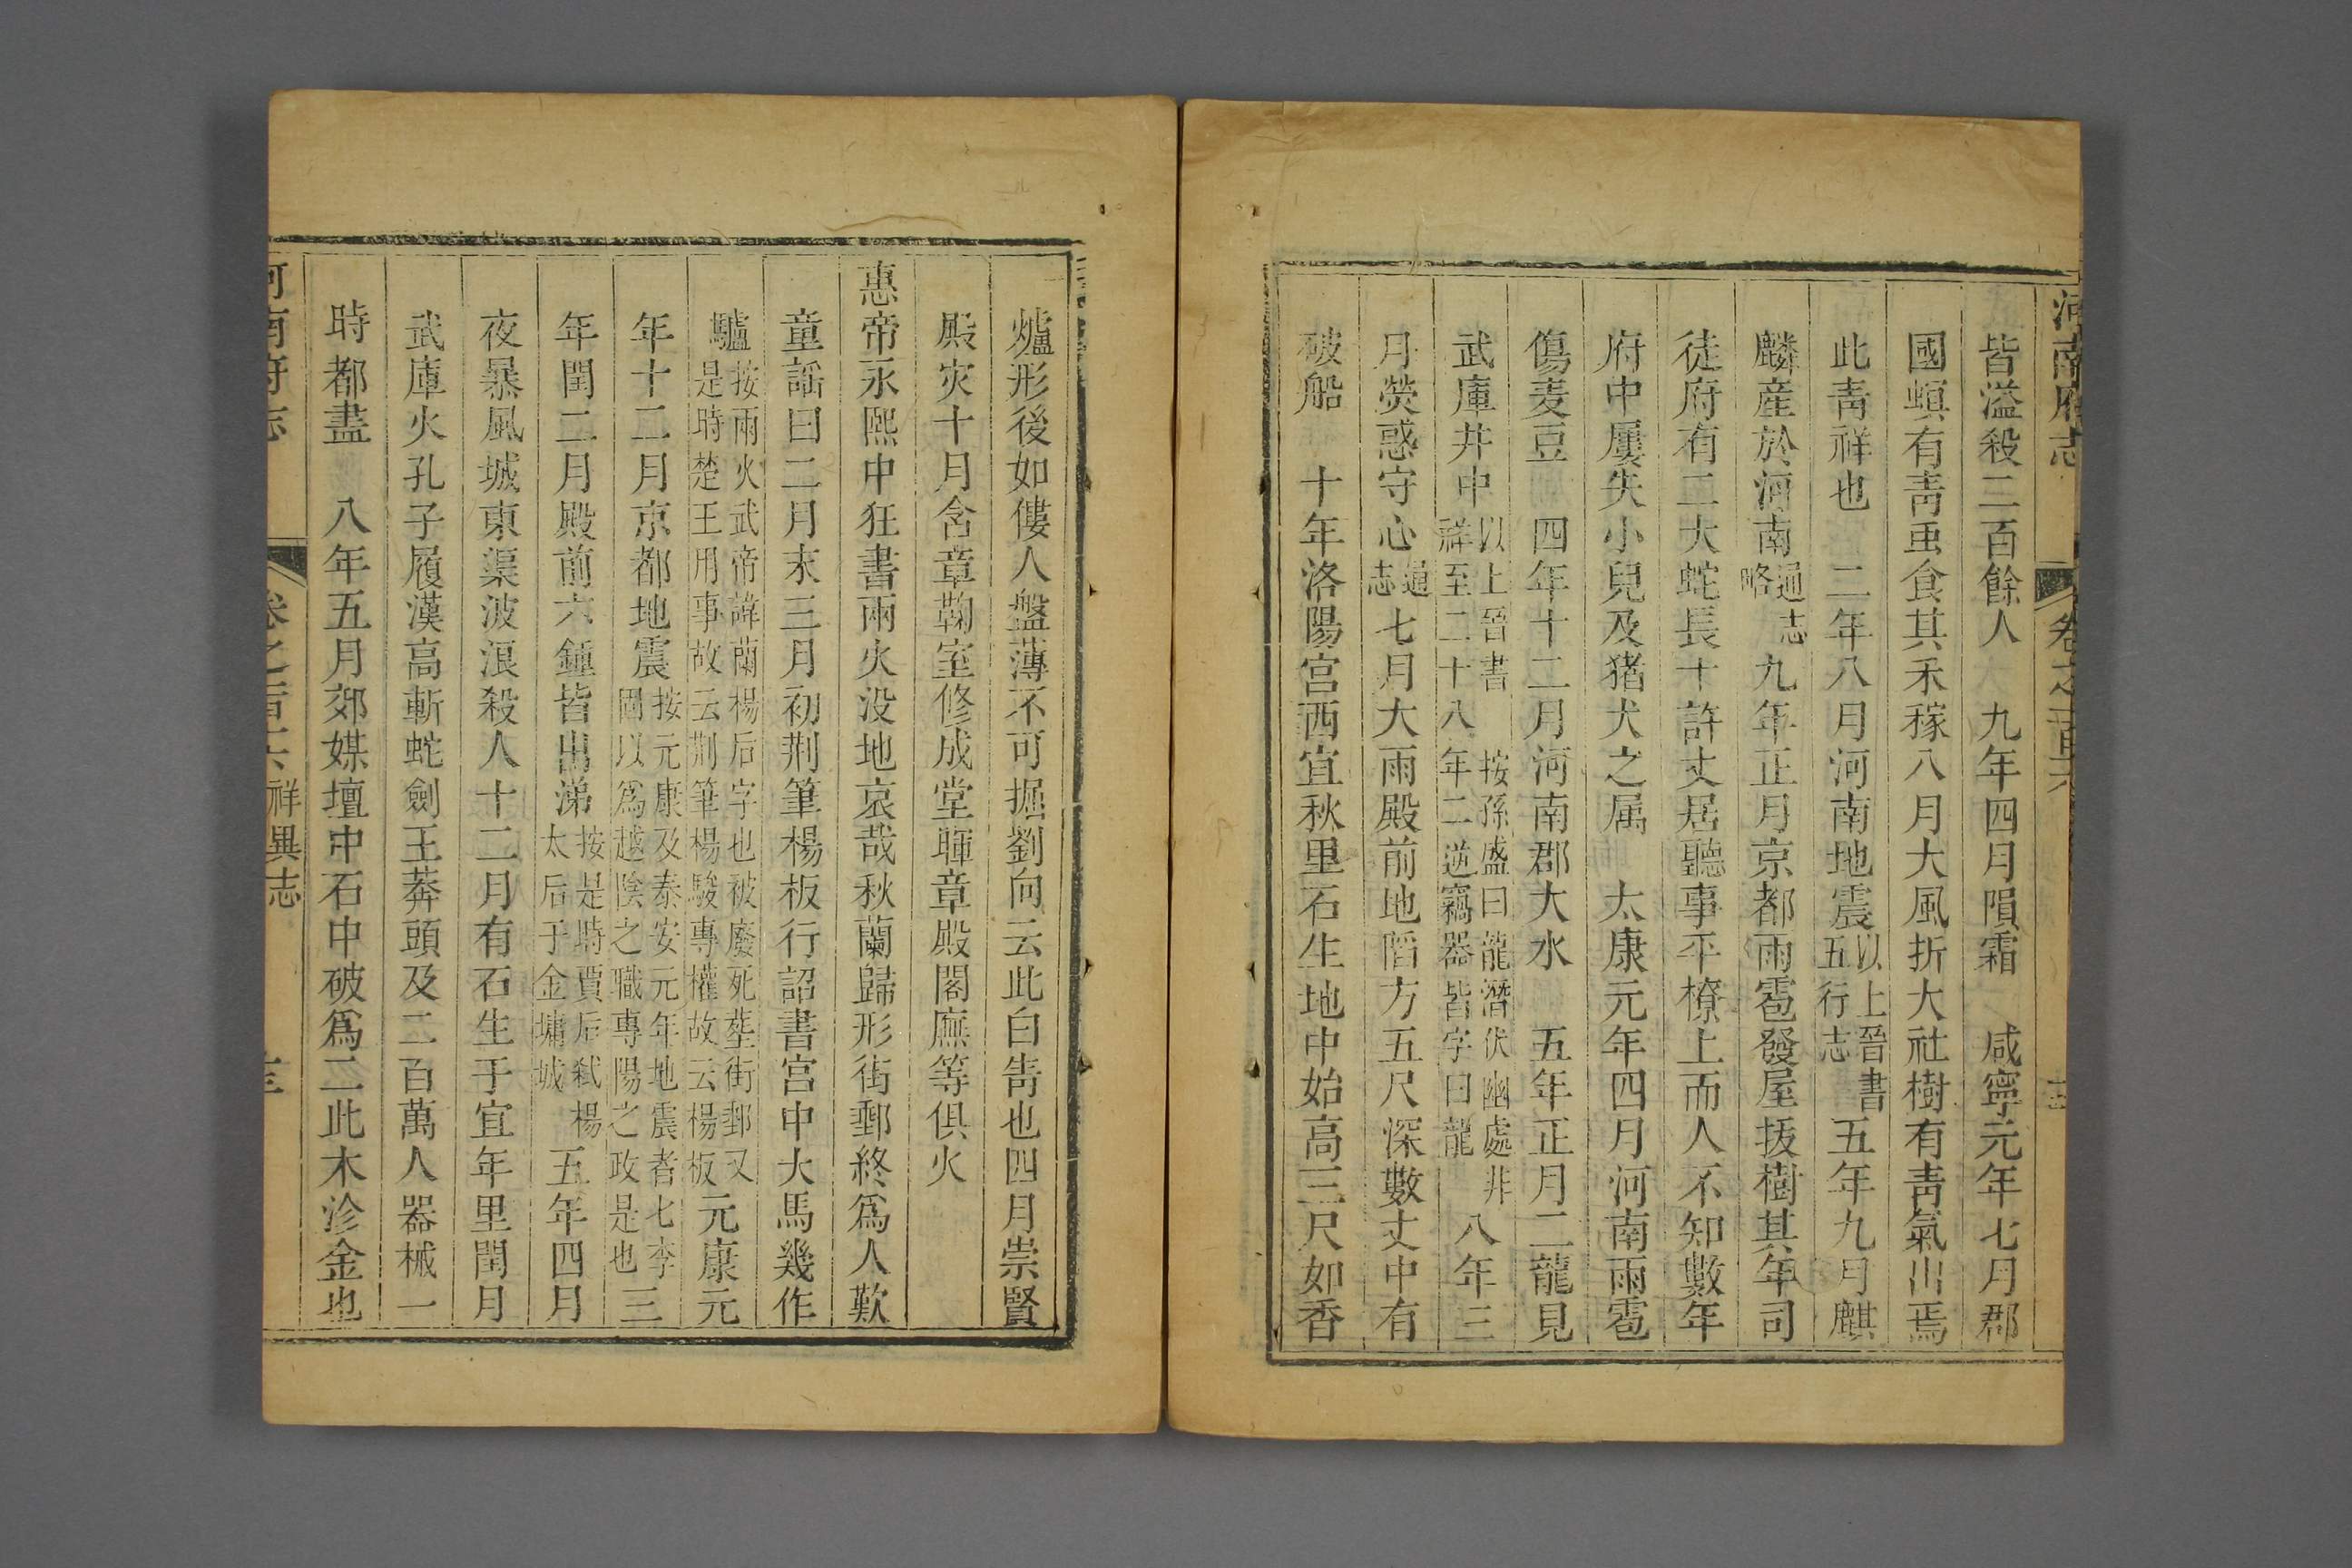 河南府志 卷之一百十六
皆溢殺三百餘人 九年四月隕霜 咸寧元年七月郡
國螟有靑䖝食其禾稼八月大風折大社樹有靑氣出焉
此靑祥也 二年八月河南地震以上晉書五行志五年九月麒
麟産於河南通志略九年正月京都雨雹發屋拔樹其年司
徒府有二大蛇長十許丈居聽事平橑上而人不知數年
府中屢失小兒及猪犬之属 太康元年四月河南雨雹
傷麦豆 四年十二月河南郡大水 五年正月二龍見
武庫井中以上晉書 按孫盛曰龍潛伏幽處非祥至二十八年二逆竊器皆字曰龍八年三
月熒惑守心通志七月大雨殿前地陷方五尺深數丈中有
破船 十年洛陽宫西宜秋里石生地中始高三尺如香
爐形後如僂人盤薄不可掘劉向云此白眚也四月崇賢
殿灾十月含章鞠室修成堂暉章殿閣廡等俱火
惠帝永熙中狂書兩火没地哀哉秋蘭歸形街郵終爲人歎
童謡曰二月末三月初荆筆楊板行詔書宫中大馬幾作
驢按兩火武帝諱蘭楊后字也被廢死塟街郵又是時楚王用事故云荆筆楊駿專權故云楊板元康元
年十二月京都地震按元康及泰安元年地震者七李固以爲越陰之職專陽之政是也三
年閏二月殿前六鍾皆出涕按是時賈后弑楊太后于金墉城五年四月
夜暴風城東渠波浪殺人十二月有石生于宜年里閏月
武庫火孔子履漢高斬蛇劍王莽頭及二百萬人器械一
時都盡 八年五月郊媒壇中石中破爲二此木沴金也
河南府志 祥異志